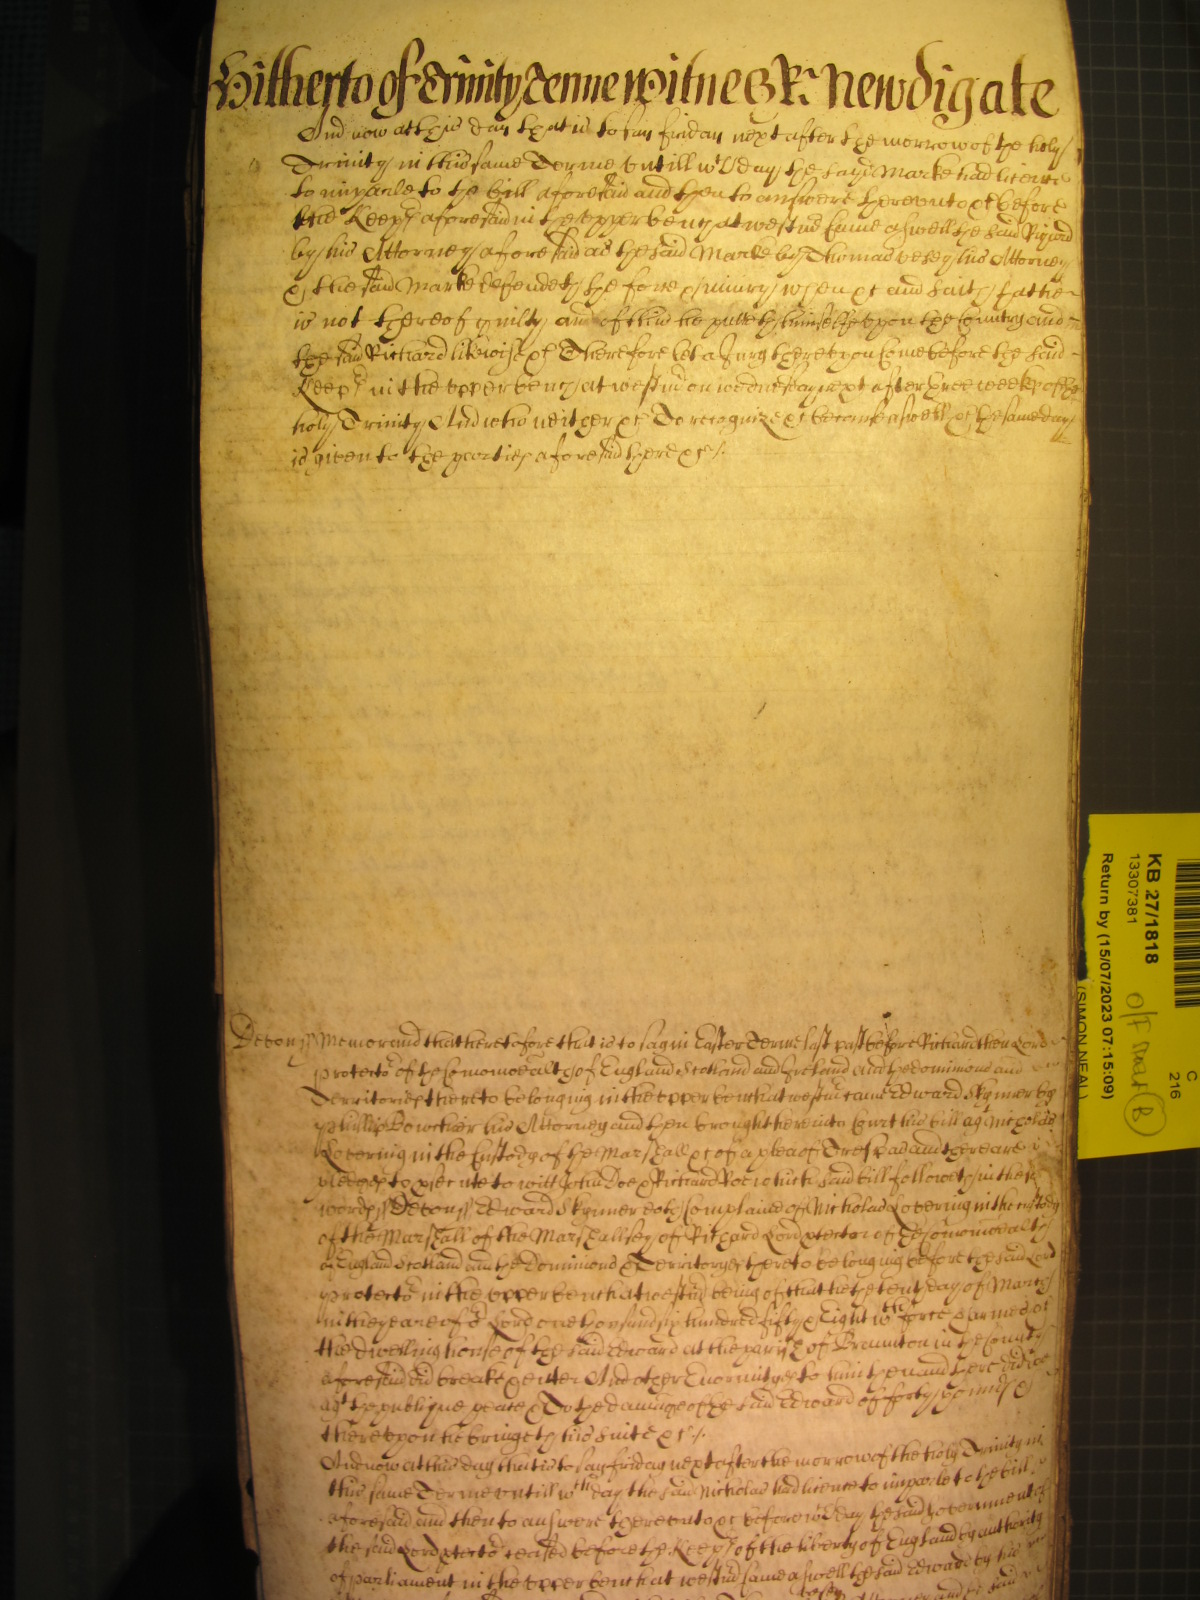 Hitherto of Trinity Terme Witnes R: Newdigate
And now at this day that is to say friday next after the morrow of the holy
Trinity in this same Terme untill wch day the said Marke had licence
to imparle to the bill aforesaid and then to answere thereunto &c before
the Keeprs aforesaid in the upper bench at westmr came aswell the said Richard
by his Attorney aforesaid as the said Marke by Thomas Vesey his Attorney
& the said Marke defendeth the force & iniury when &c and saith that he
is not thereof guilty and of this he putteth himselfe upon the Country and
the said Richard likewise &c Therefore let a Jury thereupon come before the said
Keeprs in the upper bench at westmr on wednesday next after three weeks of the
holy Trinity And who neither &c To recognize &c because aswell &c the same day
is given to the parties aforesaid there &c
Devon ss Memorand that heretofore that is to say in Easter Terme last past before Richard then Lord
Protector of the Comonwealth of England Scotland and Ireland and the dominions and
Territories thereto belonging in the upper bench at westmr came Edward Skynner by
Phillip Bowchier his Attorney and then brought here into Court his bill agt Nicholas
Lovering in the Custody of the Marshall &c of a plea of Trespas and there are
pledges to prosecute to witt John Doe & Richard Roe which said bill followeth in these
words ss Devon ss Edward Skynner complaines of Nicholas Lovering in the custody
of the Marshall of the Marshallsey of Richard Lord Protector of the Comonwealth
of England Scotland and the Dominions & Territoryes thereto belonging before the said Lord
Protector in the upper bench at westmr being of that he the tenth day of March
in the yeare of or Lord one thousand six hundred fifty & Eight wth force & armes
the dwelling house of the said Edward at the parish of Braunton in the County
aforesaid did breake & enter And other Enormityes to him then and there did
agt the publique peace & To the damage of the said Edward of forty pounds &
thereupon he bringeth this suite &c
And now at this day that is to say friday next after the morrow of the holy Trinity in
this same Terme untill wch day the said Nicholas had licence to imparle to the bill
aforesaid and then to answere thereunto &c before wch day the said government of
the said Lord Protector ceased before the Keeprs of the liberty of England by authority
of Parliament in the upper bench at westmr came aswell the said Edward by his
Vesey
Attorney and the said
KB 27/1818
13307381
Return by (15/07/2023 07:15:09)
(SIMON NEAL)
C
216
B